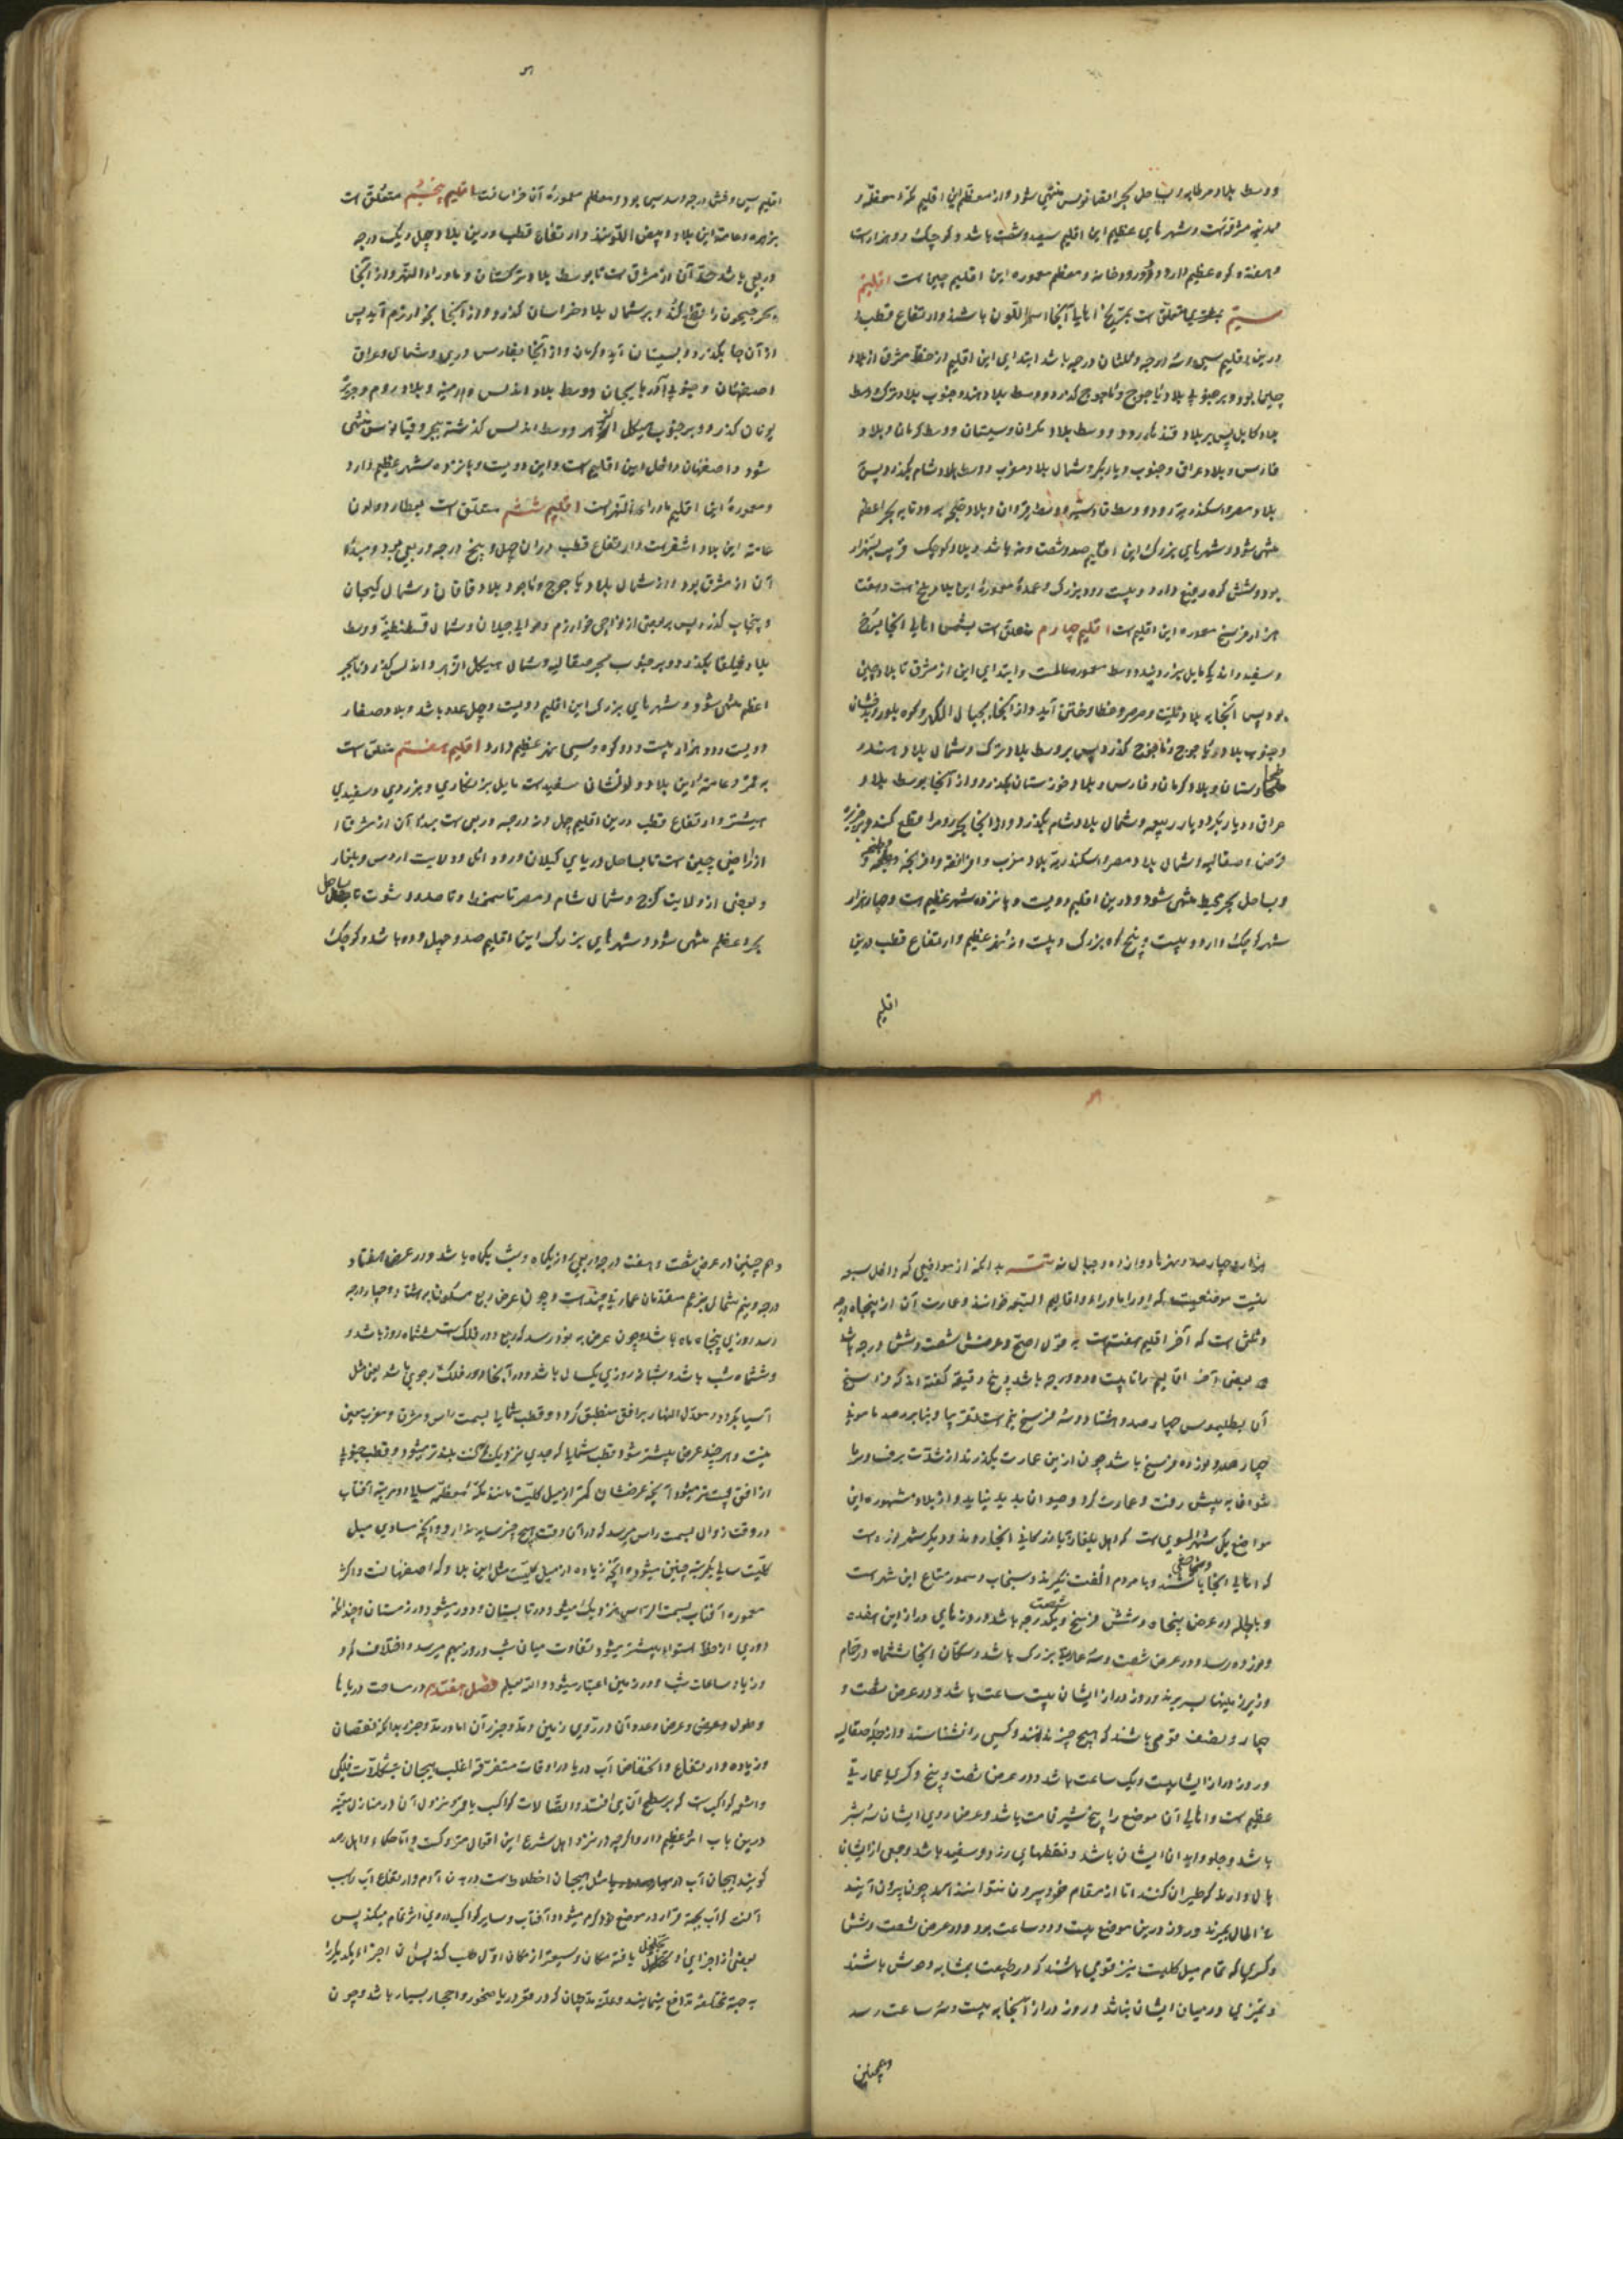 و وسط بلاد بربر و بساحل بحر اقیانوس منتهی شود و از معظم این اقلیم مکه معظمه و
مدینه مشرفه است و شهرهای عظیم این اقلیم سیصد و شصت باشد و کوچک دو هزار است
و هفده کوه عظیم دارد و رودخانه و معظم معموره این اقلیم چین است اقلیم
سیم متعلق است بمریخ اهالی آنجا اسمر اللون باشند و ارتفاع قطب
درین اقلیم سی و سه درجه و ثلثان درجه باشد ابتدای این اقلیم از مشرق از بلاد
چین بود و بر جنوبی بلاد یأجوج و مأجوج گذرد و وسط بلاد هند و جنوب بلاد ترک وسط
بلاد کابل پس بر بلاد قندهار رود و وسط بلاد مکران و سیستان و وسط کرمان و بلاد
فارس و بلاد عراق و جنوب دیار بکر و شمال بلاد مغرب و وسط بلاد شام بگذرد پس
بلاد مصر و اسکندریه رود و وسط قادسیه و وسط قیروان و بلاد طنجه رود تا به بحر اعظم
منتهی شود و شهرهای بزرگ این اقلیم صد و شصت و نه باشد و بلاد کوچک قریب سه هزار
بود و شش کوه رفیع دارد و بیست رود بزرگ و عمده معموره این بلاد بلخ است و هفت
هزار فرسخ معموره این اقلیم است اقلیم چهارم متعلق است بشمس اهالی آنجا بسرخ
و سفیدند یا مایل بزردی و وسط معموره عالمست و ابتدای این از مشرق تا بلاد چین
بود پس آنجا به بلاد تبت و خطا و ختن آید و از آنجا بجبال و کوه بلور و بدخشان
و جنوب بلاد یأجوج و مأجوج گذرد پس بر وسط بلاد ترک و شمال بلاد هند و
طخارستان و بلاد کرمان و فارس و بلاد خوزستان بگذرد و از آنجا بوسط بلاد
عراق و دیار بکر و دیار ربیعه و شمال بلاد شام بگذرد و از آنجا بحر روم را قطع کند و بر جزیره
قبرس و صقالیه و شمال بلاد مصر و اسکندریه و بلاد مغرب و افرنجه و طنجه
و بساحل بحر محیط منتهی شود و درین اقلیم دویست و پانزده شهر عظیم است و چهار هزار
شهر کوچک دارد و بیست و پنج کوه بزرگ و بیست و نهر عظیم و ارتفاع قطب درین
اقلیم
اقلیم سی و شش درجه و سدسی بود و معظم معموره آن خراسانست اقلیم پنجم متعلق است
بزهره و عامه این بلاد ابیض اللونند و ارتفاع قطب درین بلاد چهل و یک درجه
و ربعی باشد مبدأ آن از مشرق است تا بوسط بلاد ترکستان و ماوراء النهر و از آنجا
بحر جیحون را قطع کند و بر شمال بلاد خراسان گذرد و از آنجا بخوارزم آید پس
از آن جا بگذرد و بسیستان آید و کرمان و از آنجا بفارس و ری و شمال عراق
اصفهان و جنوبی آذربایجان و وسط بلاد اندلس و ارمنیه و بلاد روم و جزیره
یونان گذرد و بر جنوب هیکل الزهره و وسط اندلس گذشته ببحر اقیانوس منتهی
شود و اصفهان داخل این اقلیم است و این دویست و پانزده شهر عظیم دارد
و معموره این اقلیم ماوراء النهر است اقلیم ششم متعلق است بعطارد و لون
عامه این بلاد اشقر است و ارتفاع قطب در آن چهل و پنج درجه و ربعی بود و مبدأ
آن از مشرق بود و از شمال بلاد یأجوج و مأجوج و بلاد خاقان و شمال کیجان
و پنجاب گذرد پس بر بعضی از نواحی خوارزم و حوالی جیلان و شمال قسطنطنیه و وسط
بلاد بگذرد و بر جنوب بحر صقالیه و شمال هیکل الزهره و اندلس گذرد تا ببحر
اعظم منتهی شود و شهرهای بزرگ این اقلیم دویست و چهل عدد باشد و بلاد صغار
دویست و دو هزار بیست و دو کوه و سی نهر عظیم دارد اقلیم هفتم متعلق است
به قمر و عامه این بلاد لونشان سفید است مایل بزنگاری و بزردی و سفیدی
بیشتر و ارتفاع قطب درین اقلیم چهل و نه درجه و ربعی است مبدأ آن از مشرق
از اراضی چین است تا بساحل دریای گیلان و ولایت اروس و بلغار
و بعضی از ولایت کرج و شمال شام و مصر تا بساحل
بحر اعظم منتهی شود و شهرهای بزرگ این اقلیم صد و چهل و ده باشد و کوچک
هزار و چهارصد و نهرها دوازده و جبال نه تتمه بدانکه از مواضعی که داخل سبعه
نیست موضعیست که او را ماوراء اقالیم السبعه خوانند و عمارت آن از پنجاه درجه
و ثلثی است که آخر اقلیم هفتم است به قول اصح و عرضش شصت و شش درجه باشد
و بعضی آخر اقالیم را تا بیست و دو درجه باشد و پنج دقیقه گفته اند که فراسخ
آن بطلمیوس چهارصد و هشتاد و سه فرسخ است تقریبا و بنا بر رصد مامونی
چهارصد و نوزده فرسخ باشد چون ازین عمارت بگذرند از شدت برف و سرما
نتوان به پیش رفت و عمارت کرد و حیوان پدید نیاید و از بلاد مشهوره این
مواضع یکی شهر السوی است که اهل بلغار آنجا روند و دیگر شهر است
که اهالی آنجا وحشی باشند و با مردم الفت نگیرند و سنجاب و سمور متاع این شهر است
و بالجمله در عرض پنجاه و شش فرسخ و یک درجه باشد و روزهای دراز این هفده
و نوزده رسد و در عرض شصت و سه عمارت بزرگ باشد و سکان آنجا ششماه در حمام
و زیر زمینها بسر برند و روز دراز ایشان بیست ساعت باشد و در عرض شصت و
چهار و نصف قومی باشند که هیچ چیز ندانند و کسی را نشناسند و از جمله صقالیه
و روز دراز ایشان بیست و یک ساعت باشد و در عرض شصت و پنج و کسری عمارتی
عظیم است و اهالی آن موضع را پنج شبر قامت باشد و عرض روی ایشان سه شبر
باشد و جلود ابدان ایشان باشد و نقطهای زرد و سفید باشد و بعضی از ایشان
بال دارند که طیران کنند اما از مقام خود بیرون نتوانند آمد چون بیرون آیند
فی الحال بمیرند و روز درین موضع بیست و دو ساعت بود و در عرض شصت و شش
و کسری که تمام میل کلیست نیز قومی باشند که در طبیعت بمشابه وحوش باشند
و تمیزی در میان ایشان نباشد و روز دراز آنجا به بیست و سه ساعت رسد
و همچنین
و همچنین در عرض شصت و هفت درجه و ربعی روز یکماه و شب یکماه باشد و در عرض هفتاد
درجه و نیم شمال بزعم متقدمان عمارتی چند است و چون عرض ربع مسکون بهشتاد و چهار درجه
رسد روزی پنجاه ماه باشد و چون عرض به نود رسد که ربع دور فلک است ششماه روز باشد و
و ششماه شب باشد و شبانه روزی یکسال باشد و در آنجا دور فلک رحوی باشد یعنی مثل
آسیا بگردد و معدل النهار بر افق منطبق گردد و قطب شمالی بسمت راس و مشرق و مغرب معین
نیست و هر چند عرض بیشتر شود قطب شمالی که جدی نزدیک آنست بلندتر میشود و قطب جنوبی
از افق پست تر میشود آنچه عرضشان کمتر از میل کلیست مانند مکه معظمه سالی دو مرتبه آفتاب
در وقت زوال بسمت راس میرسد که در آن وقت هیچ چیز سایه ندارد و آنچه مساوی میل
کلیست سالی یکمرتبه چنین میشود و آنچه زیاده از میل کلیست مثل این بلاد که اصفهانست و اکثر
معموره آفتاب بسمت الراس نزدیک میشود در تابستان و دور میشود در زمستان و چندانکه
دوری از خط استوا بیشتر میشود تفاوت میان شب و روز بهم میرسد و اختلاف کم و
و زیاد ساعات شب و روز همین اعتبار میشود والله یعلم فصل هفتم در مساحت دریاها
و طول و عرض و عدد آن در روی زمین و مد و جزر آن اما در مد و جزر بدانکه نقصان
و زیاده و ارتفاع و انخفاض آب دریا در اوقات متفرقه اغلب بهیجان بتشکلات فلکی
و اشعه کواکبست که بر سطح آن می افتد و اتصالات کواکب با قمر و نزول آن در منازل معینه
درین باب اثر عظیم دارد اگرچه در نزد اهل شرع این اقوال متروکست و اما حکماء و اهل رصد
گویند هیجان آب دریا مثل هیجان اخلاط است در بدن آدم و ارتفاع آب بسبب
آنست که آب بجهة قرار در موضع خود گرم میشود و آفتاب و سایر کواکب در وی اثر تمام میکند پس
بعضی از اجزای او تحلیل یافته مکان وسیعتر از مکان اول طلب کند پس آن اجزاء یکدیگر را
به جهة مختلفه تدافع نمایند و علت مد چنان که در قعر دریا صخور و احجار بسیار باشد و چون